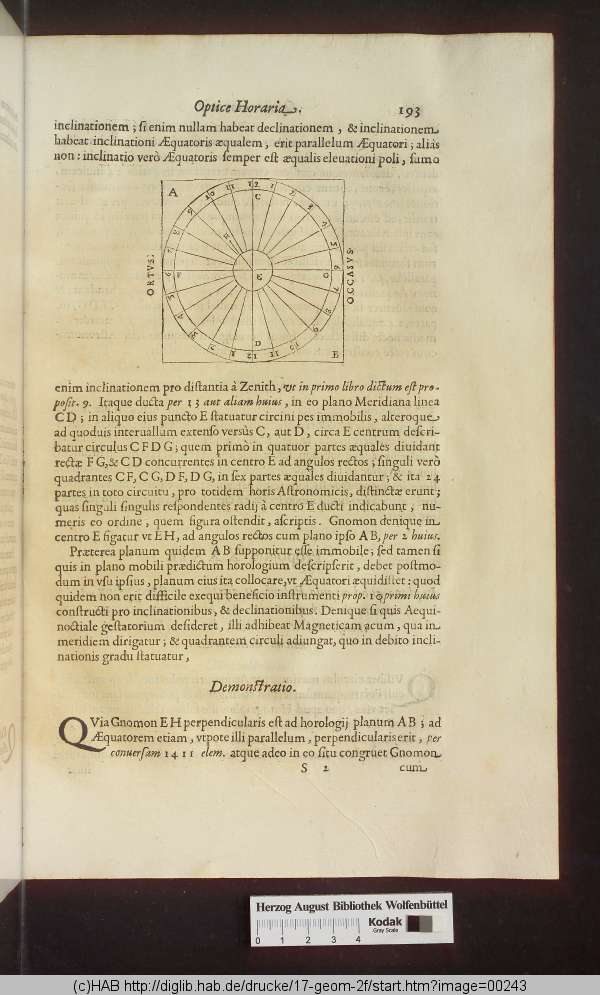 Optice Horaria. 193
inclinationem; ſi enim nullam habeat declinationem, & inclinationem
habeat inclinationi Æquatoris æqualem, erit parallelum Æquatori; aliàs
non: inclinatio verò Æquatoris ſemper eſt æqualis eleuationi poli, ſumo
A
ORTVS.
OCCASVS.
C
D
B
enim inclinationem pro diſtantia à Zenith, vt in primo libro dictum eſt pro-
poſit. 9. Itaque ducta per 13 aut aliam huius, in eo plano Meridiana linea
CD; in aliquo eius puncto E ſtatuatur circini pes immobilis, alteroque
ad quoduis interuallum extenſo versùs C, aut D, circa E centrum deſcri-
batur circulus CFDG; quem primò in quatuor partes æquales diuidant
rectæ FG, & CD concurrentes in centro E ad angulos rectos; ſinguli verò
quadrantes CF, CG, DF, DG, in ſex partes æquales diuidantur; & ita 24
partes in toto circuitu, pro totidem horis Aſtronomicis, diſtinctæ erunt;
quas ſinguli ſingulis reſpondentes radij à centro E ducti indicabunt, nu-
meris eo ordine, quem figura oſtendit, aſcriptis. Gnomon denique in
centro E figatur vt EH, ad angulos rectos cum plano ipſo AB, per 2 huius.
Præterea planum quidem AB ſupponitur eſſe immobile; ſed tamen ſi
quis in plano mobili prædictum horologium deſcripſerit, debet poſtmo-
dum in vſu ipſius, planum eius ita collocare, vt Æquatori æquidiſtet: quod
quidem non erit difficile exequi beneficio inſtrumenti prop. 19 primi huius
conſtructi pro inclinationibus, & declinationibus. Denique ſi quis Aequi-
noctiale geſtatorium deſideret, illi adhibeat Magneticam acum, qua in
meridiem dirigatur; & quadrantem circuli adiungat, quo in debito incli-
nationis gradu ſtatuatur,
Demonſtratio.
QVia Gnomon EH perpendicularis eſt ad horologij planum AB; ad
Æquatorem etiam, vtpote illi parallelum, perpendicularis erit, per
conuerſam 14 11 elem. atque adeo in eo ſitu congruet Gnomon
S 2 cum
Herzog August Bibliothek Wolfenbüttel
0 1 2 3 4
Kodak
Gray Scale
(c)HAB http://diglib.hab.de/drucke/17-geom-2f/start.htm?image=00243